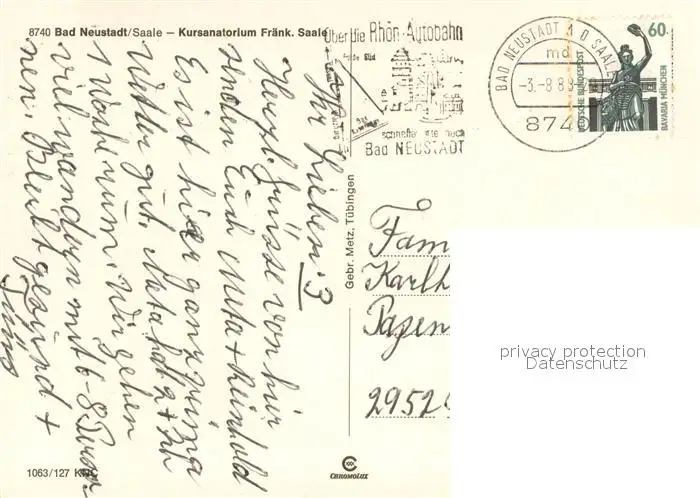 8740 Bad Neustadt/Saale — Kursanatorium Fränk. Saale
Über die Rhön-Autobahn
schneller wie nach
Bad NEUSTADT
BAD NEUSTADT A D SAALE
md
-3.-8.89
874
60
DEUTSCHE BUNDESPOST
BAVARIA MÜNCHEN
Ihr Lieben 3
Herzl. Grüsse von hier
senden Euch Meta + Reinhold
Es ist hier ganz prima
Wetter gut. Meta hat 2 +
1 Woche rum. Wir gehen
viel wandern mit 6-8 Perso-
nen. Bleibt gesund +
Tüns
Gebr. Metz, Tübingen
Fam
Karlh
Pagen
2952
privacy protection
Datenschutz
1063/127 KNC
CHROMOLUX